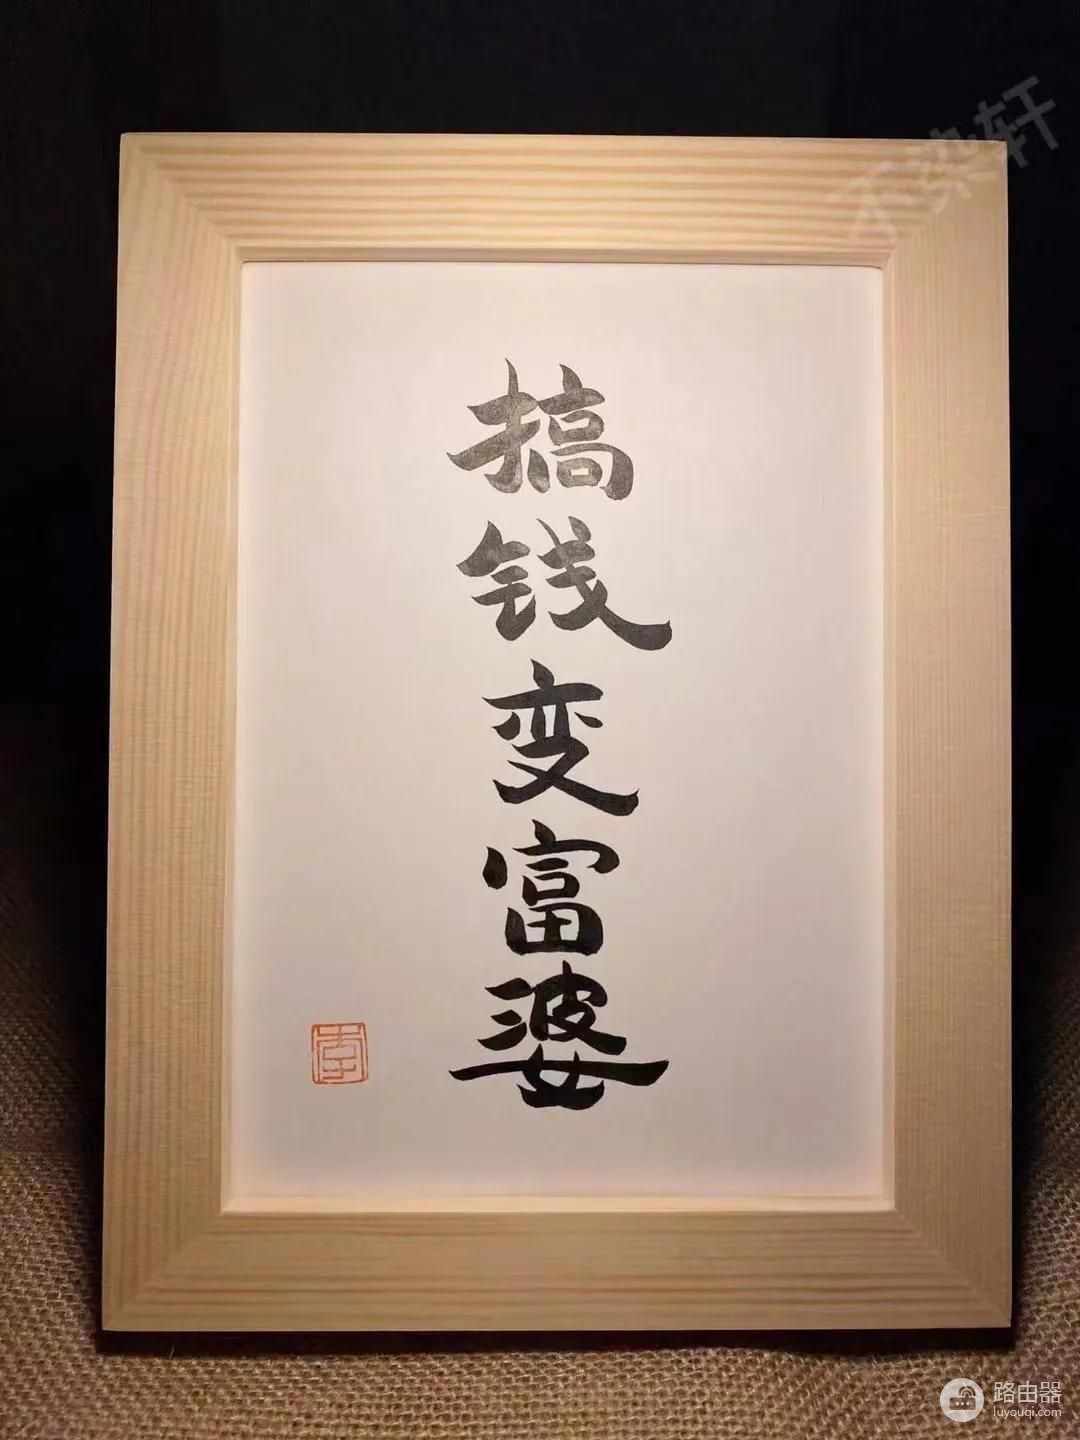 不染轩
搞钱变富婆
路由器
luyouqi.com